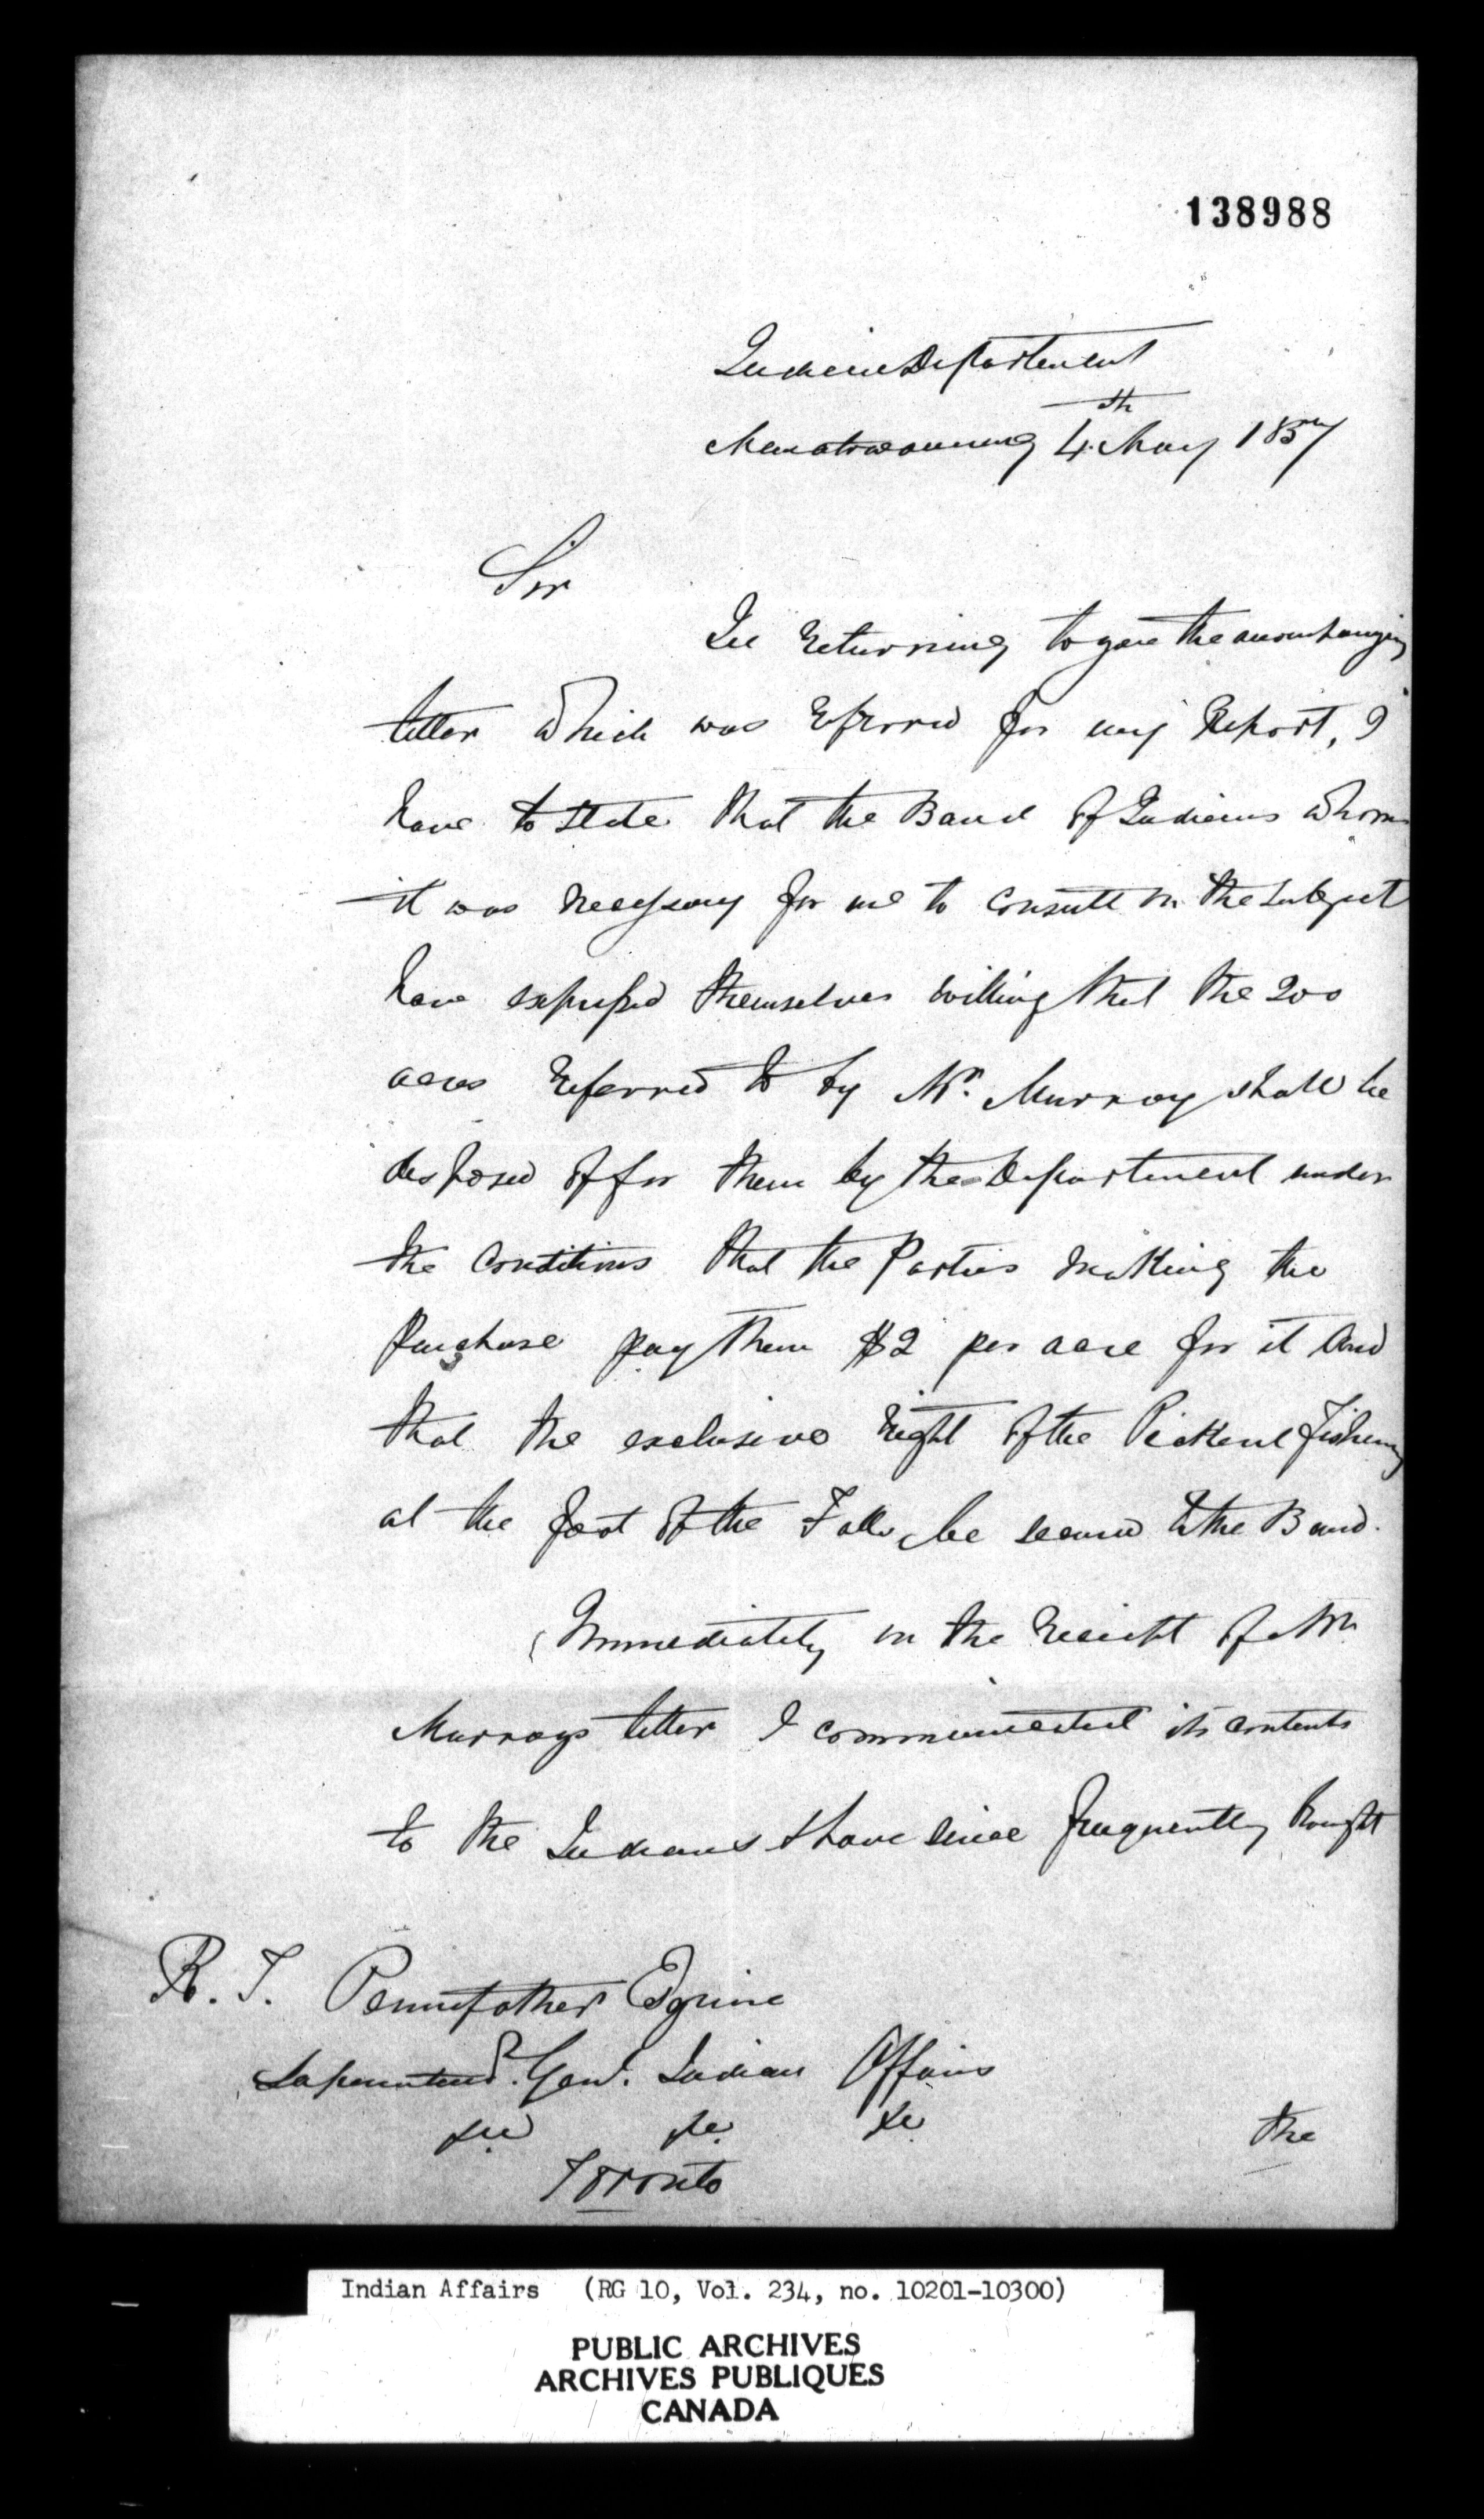 138988
Indian Department
Manatowaning 4th May 1857
Sir
In returning to you the accompanying
letter which was referred for my Report, I
have to state that the Band of Indians whom
it was necessary for me to consult on the subject
have expressed themselves willing that the 200
acres referred to by Mr. Murray shall be
disposed of for them by the Department under
the conditions that the Parties making the
purchase pay them $2 per acre for it and
that the exclusive right of the Pickerel Fishery
at the foot of the Falls, be secured to the Band.
Immediately on the receipt of Mr
Murrays letter I communicated its contents
to the Indians & have since frequently brought
R. T. Pennefather Esquire
Superintend. Genl. Indian Affairs
&c &c &c
the
Toronto
Indian Affairs (RG 10, Vol. 234, no. 10201-10300)
PUBLIC ARCHIVES
ARCHIVES PUBLIQUES
CANADA